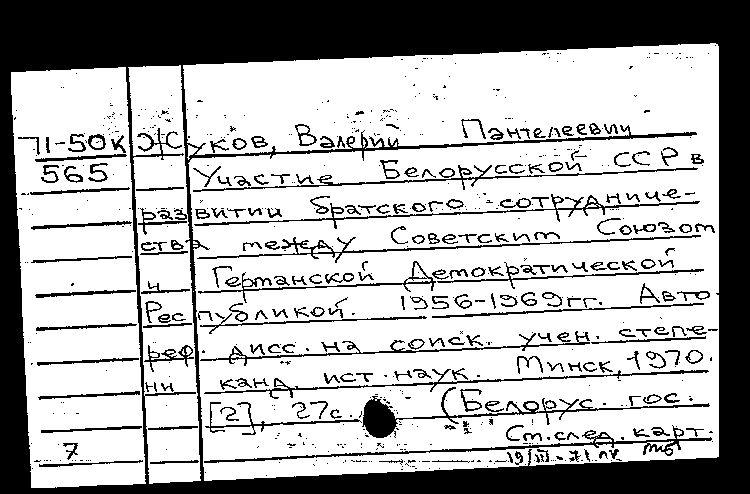 71-50к Жуков, Валерий Пантелеевич
565 Участие Белорусской ССР в
развитии братского сотрудниче-
ства между Советским Союзом
и Германской Демократической
Республикой. 1956-1969гг. Авто-
реф. дисс. на соиск. учен. степе-
ни канд. ист. наук. Минск, 1970.
[2], 27с. (Белорус. гос.
7 См. след. карт.
19/III-71